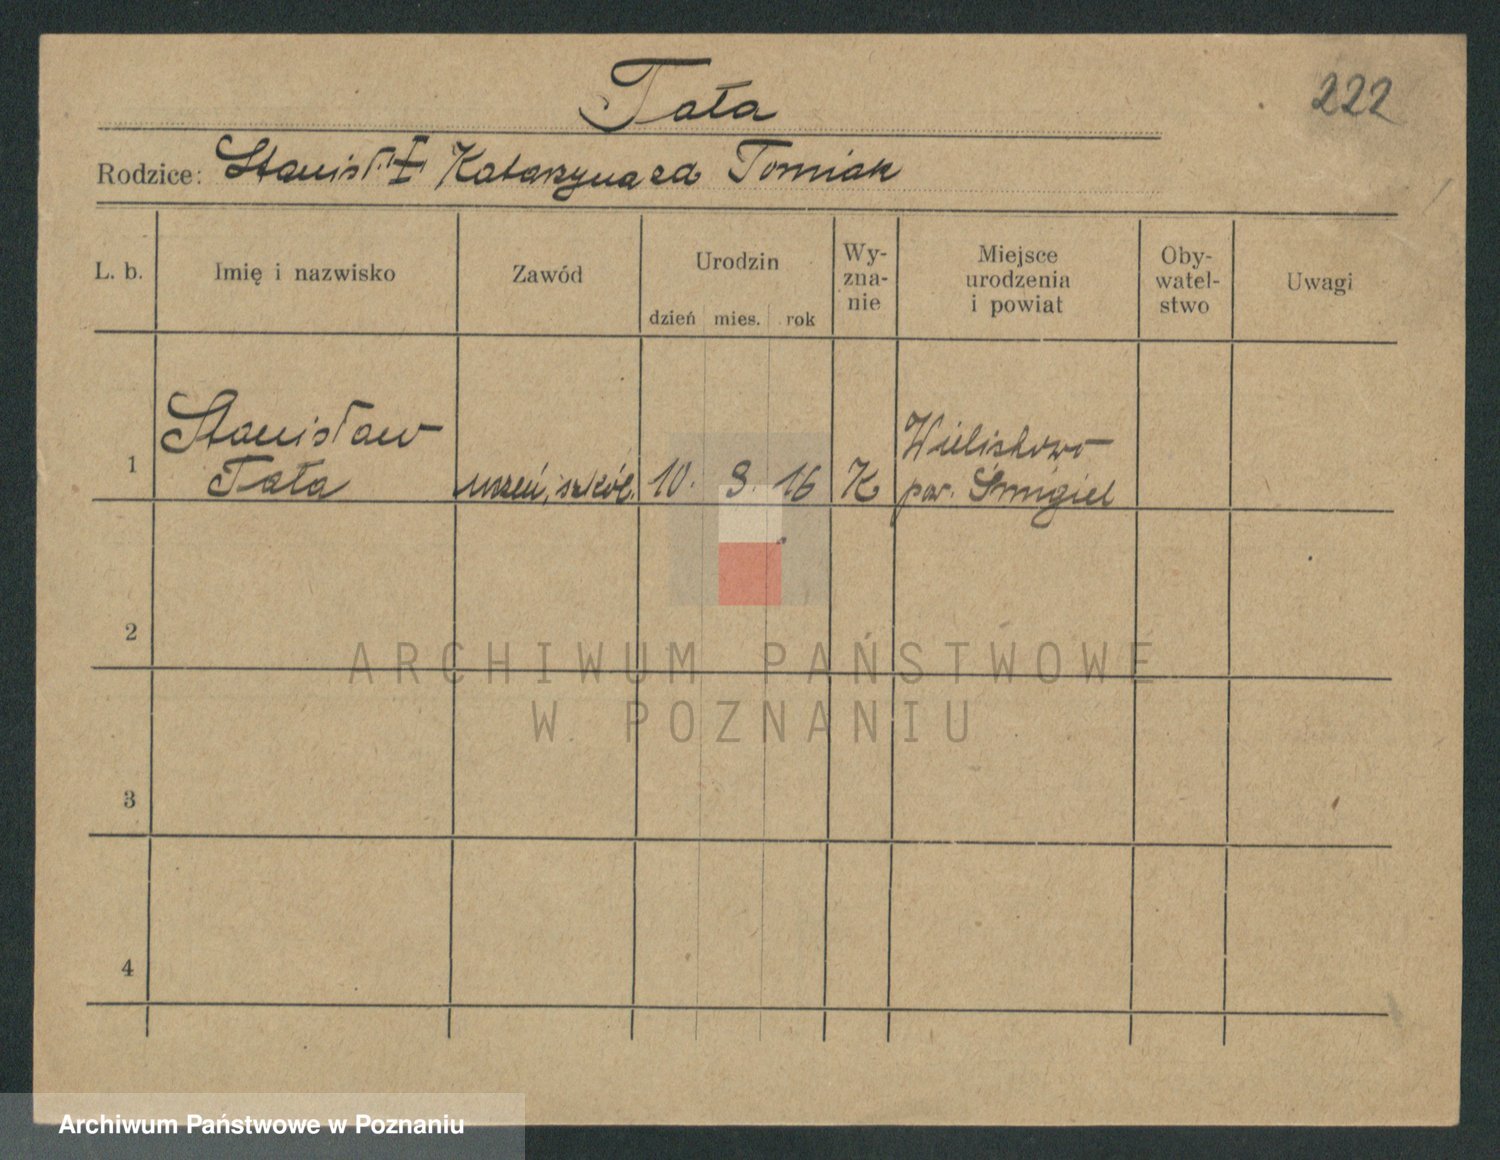 222
Tała
Rodzice: Stanisł. i Katarzyna zd Tomiak
L. b. Imię i nazwisko Zawód Urodzin dzień mies. rok Wy-zna-nie Miejsce urodzenia i powiat Oby-watel-stwo Uwagi
Stanisław Wielichowo
1 Tała uczeń, szkół. 10. 9. 16 K pow. Śmigiel
2
3
4
ARCHIWUM PAŃSTWOWE
W POZNANIU
Archiwum Państwowe w Poznaniu